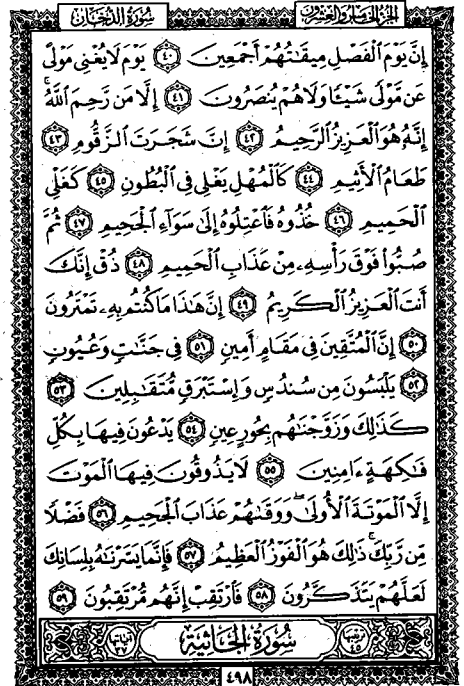 الجزء الخامس والعشرون
سورة الدخان
إِنَّ يَوْمَ ٱلْفَصْلِ مِيقَٰتُهُمْ أَجْمَعِينَ ٤٠ يَوْمَ لَا يُغْنِى مَوْلًى
عَن مَّوْلًى شَيْـًٔا وَلَا هُمْ يُنصَرُونَ ٤١ إِلَّا مَن رَّحِمَ ٱللَّهُ ۚ
إِنَّهُۥ هُوَ ٱلْعَزِيزُ ٱلرَّحِيمُ ٤٢ إِنَّ شَجَرَتَ ٱلزَّقُّومِ ٤٣
طَعَامُ ٱلْأَثِيمِ ٤٤ كَٱلْمُهْلِ يَغْلِى فِى ٱلْبُطُونِ ٤٥ كَغَلْىِ
ٱلْحَمِيمِ ٤٦ خُذُوهُ فَٱعْتِلُوهُ إِلَىٰ سَوَآءِ ٱلْجَحِيمِ ٤٧ ثُمَّ
صُبُّوا۟ فَوْقَ رَأْسِهِۦ مِنْ عَذَابِ ٱلْحَمِيمِ ٤٨ ذُقْ إِنَّكَ
أَنتَ ٱلْعَزِيزُ ٱلْكَرِيمُ ٤٩ إِنَّ هَٰذَا مَا كُنتُم بِهِۦ تَمْتَرُونَ
٥٠ إِنَّ ٱلْمُتَّقِينَ فِى مَقَامٍ أَمِينٍ ٥١ فِى جَنَّٰتٍ وَعُيُونٍ
٥٢ يَلْبَسُونَ مِن سُندُسٍ وَإِسْتَبْرَقٍ مُّتَقَٰبِلِينَ ٥٣
كَذَٰلِكَ وَزَوَّجْنَٰهُم بِحُورٍ عِينٍ ٥٤ يَدْعُونَ فِيهَا بِكُلِّ
فَٰكِهَةٍ ءَامِنِينَ ٥٥ لَا يَذُوقُونَ فِيهَا ٱلْمَوْتَ
إِلَّا ٱلْمَوْتَةَ ٱلْأُولَىٰ ۖ وَوَقَىٰهُمْ عَذَابَ ٱلْجَحِيمِ ٥٦ فَضْلًا
مِّن رَّبِّكَ ۚ ذَٰلِكَ هُوَ ٱلْفَوْزُ ٱلْعَظِيمُ ٥٧ فَإِنَّمَا يَسَّرْنَٰهُ بِلِسَانِكَ
لَعَلَّهُمْ يَتَذَكَّرُونَ ٥٨ فَٱرْتَقِبْ إِنَّهُم مُّرْتَقِبُونَ ٥٩
ترتيبها ٤٥
سُورَةُ الجَاثِيَة
آياتها ٣٧
٤٩٨